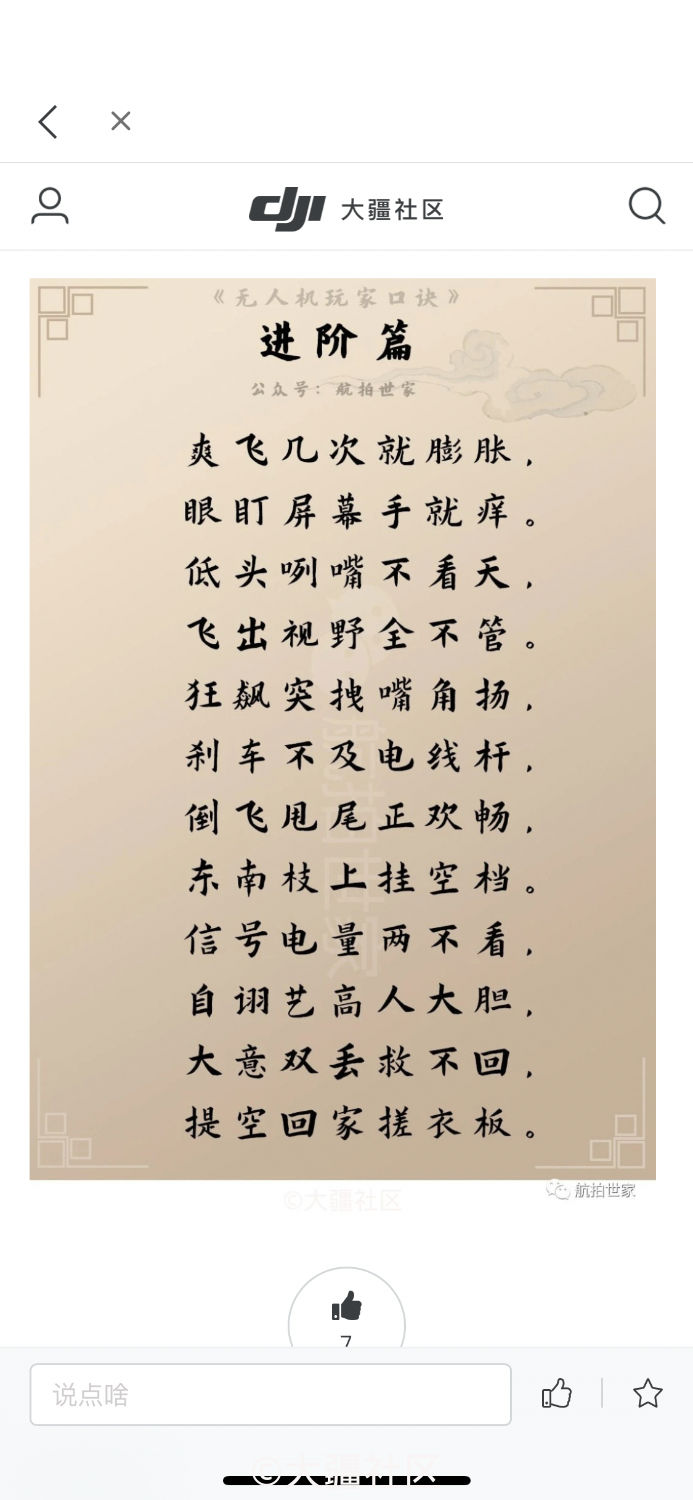 dji 大疆社区
《无人机玩家口诀》
进阶篇
公众号：航拍世家
爽飞几次就膨胀，
眼盯屏幕手就痒。
低头咧嘴不看天，
飞出视野全不管。
狂飙突拽嘴角扬，
刹车不及电线杆，
倒飞甩尾正欢畅，
东南枝上挂空档。
信号电量两不看，
自诩艺高人大胆，
大意双丢救不回，
提空回家搓衣板。
航拍世家
航拍世家
©大疆社区
7
说点啥
©大疆社区